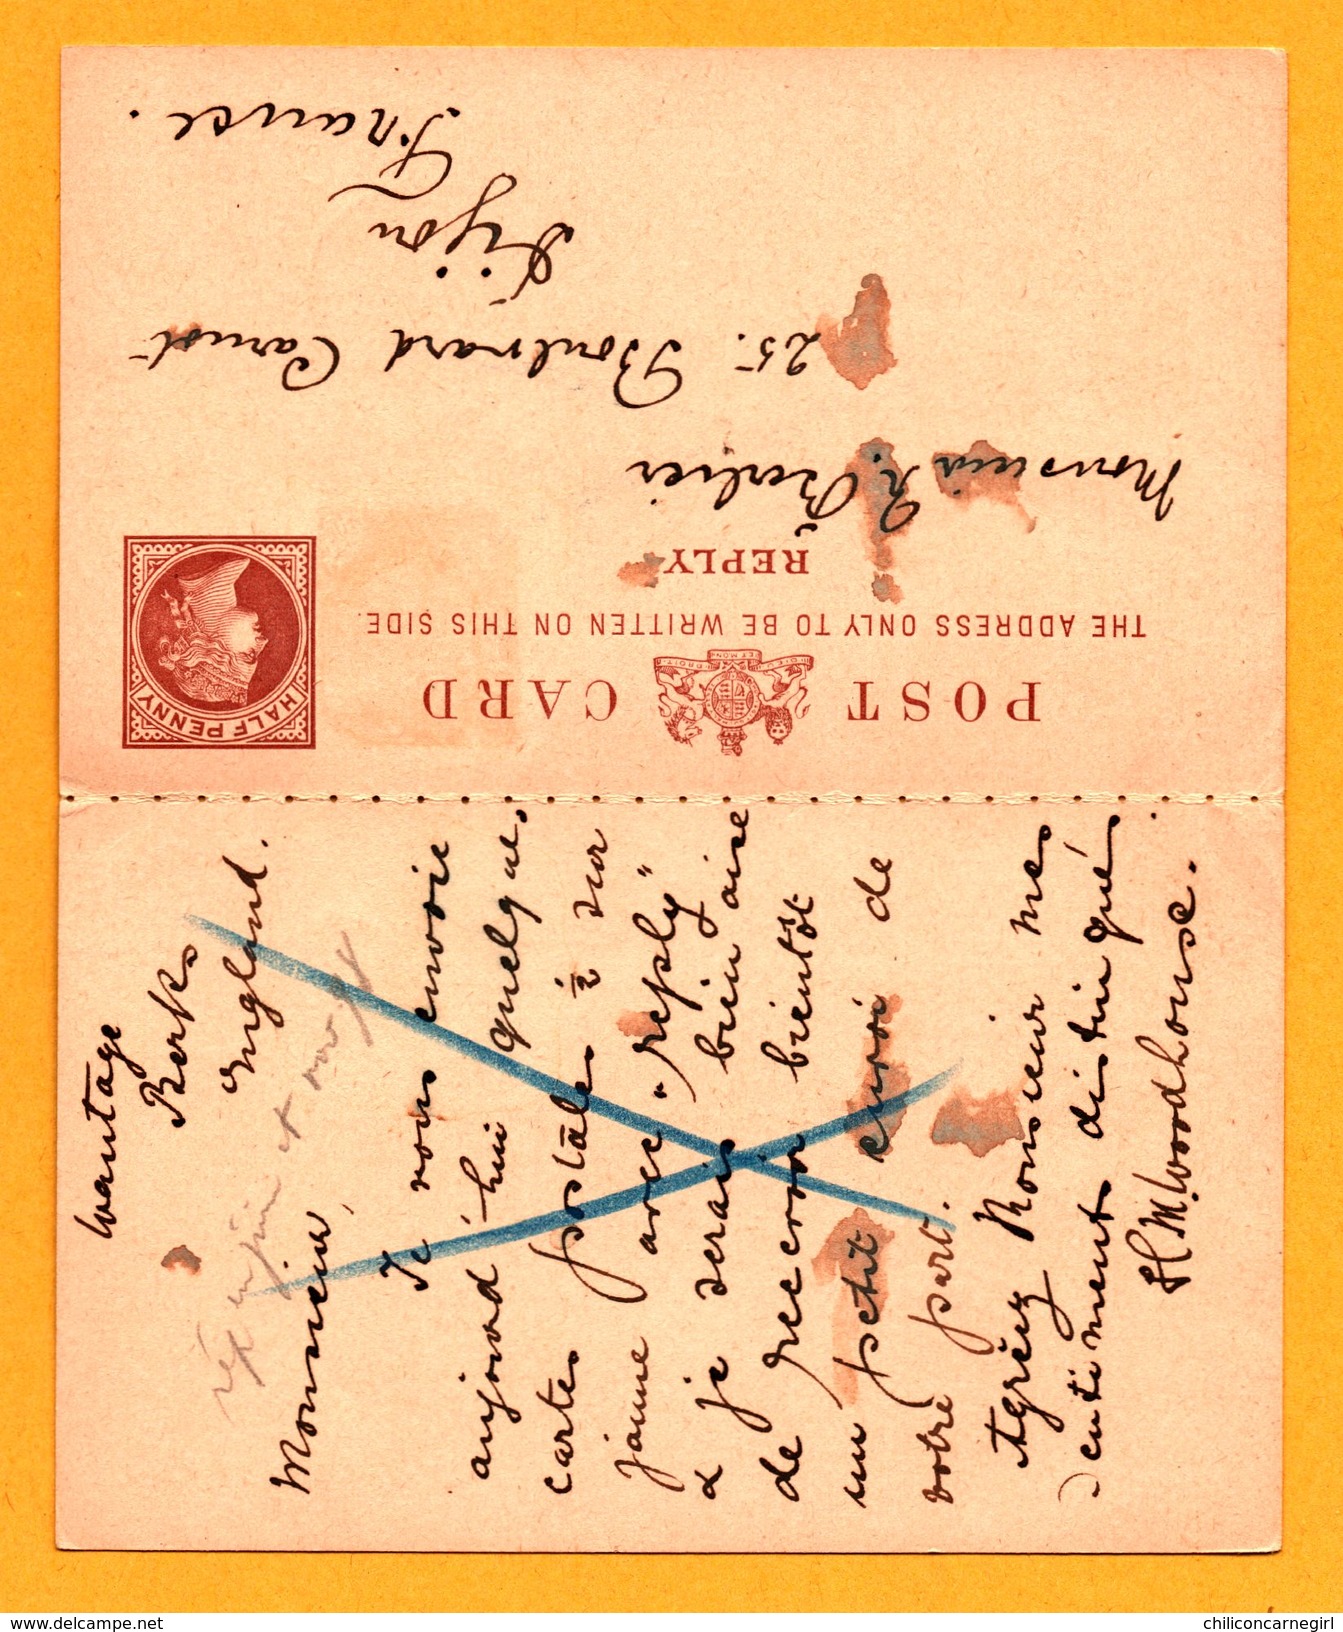 POST CARD
THE ADDRESS ONLY TO BE WRITTEN ON THIS SIDE.
REPLY
HALF PENNY
DIEU ET MON DROIT
Monsieur
25. Boulvard Carnot
Dijon
France.
Wantage
Berks
England.
Monsieur,
Je vous envoie
aujourd'hui quelque,
cartes postales ½ sur
jaune avec "reply"
& je serais bien aise
de recevoir bientôt
un petit envoi de
votre part.
Agréez Monsieur mes
sentiments distingués
H. M. Woodhouse.
www.delcampe.net
chiliconcarnegirl